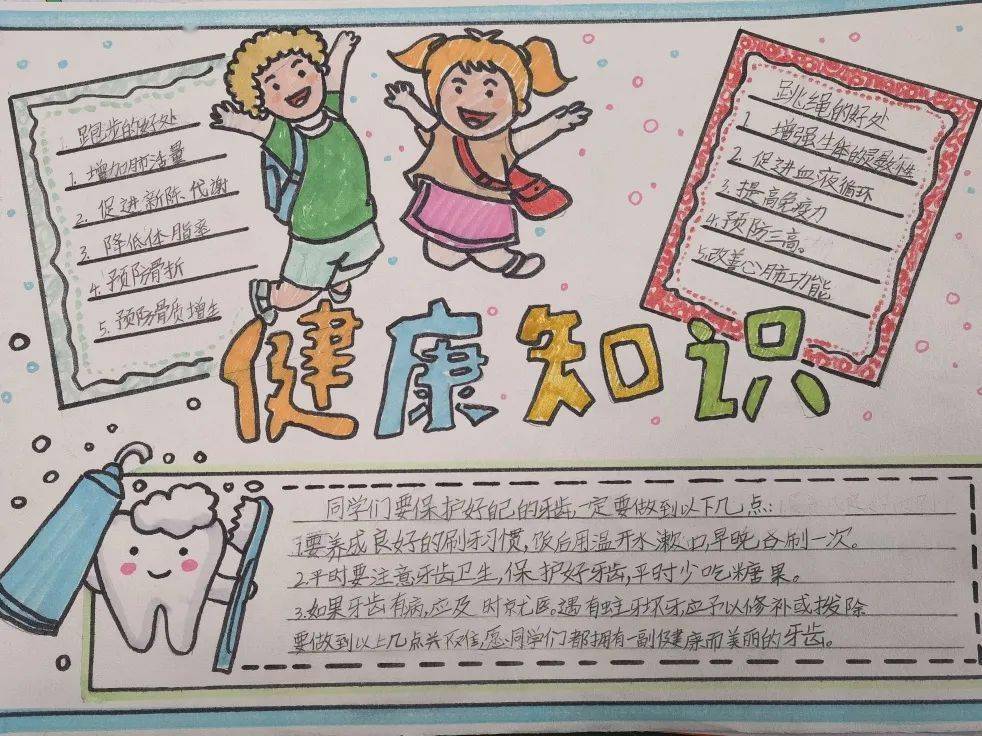 跑步的好处
1. 增加肺活量
2. 促进新陈代谢
3. 降低体脂率
4. 预防骨折
5. 预防骨质增生
跳绳的好处
1. 增强生体的灵敏性
2. 促进血液循环
3. 提高免疫力
4. 预防三高。
5. 改善心肺功能
健康知识
同学们要保护好自己的牙齿,一定要做到以下几点:
1.要养成良好的刷牙习惯,饭后用温开水漱口,早晚各刷一次。
2.平时要注意牙齿卫生,保护好牙齿,平时少吃糖果。
3.如果牙齿有病,应及时就医。遇有蛀牙坏牙应予以修补或拨除
要做到以上几点 ,愿同学们都拥有一副健康而美丽的牙齿。